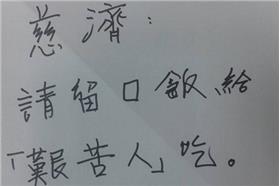 慈濟：
請留口飯、給
「艱苦人」吃。